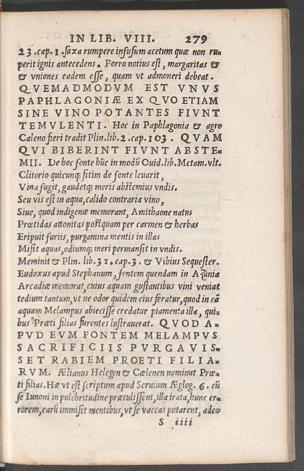 IN LIB. VIII. 279
23. cap. 1. saxa rumpere infusum acetum quæ non ru-
perit ignis antecedens. Porro notius est, margaritas &
& vniones eadem esse, quam vt admoneri debeat.
QVEMADMODVM EST VNVS
PAPHLAGONIÆ EX QVO ETIAM
SINE VINO POTANTES FIVNT
TEMVLENTI. Hoc in Paphlagonia & agro
Caleno fieri tradit Plin. lib. 2. cap. 103. QVAM
QVI BIBERINT FIVNT ABSTE-
MII. De hoc fonte hũc in modũ Ouid. lib. Metam. vlt.
Clitorio quicunq; sitim de fonte leuarit,
Vina fugit, gaudetq; meris abstemius vndis.
Seu vis est in aqua, calido contraria vino,
Siue, quod indigenæ memorant, Amithaone natus
Prœtidas attonitas postquam per carmen & herbas
Eripuit furiis, purgamina mentis in illas
Misit aquas, odiumq; meri permansit in vndis.
Meminit & Plin. lib. 31. cap. 3. & Vibius Sequester.
Eudoxus apud Stephanum, fontem quendam in Azania
Arcadiæ memorat, cuius aquam gustantibus vini veniat
tedium tantum, vt ne odor quidem eius feratur, quod in eã
aquam Melampus abiecisse credatur piamenta illa, qui-
bus Prœti filias furentes lustrauerat. QVOD A-
PVD EVM FONTEM MELAMPVS
SACRIFICIIS PVRGAVIS-
SET RABIEM PROETI FILIA-
RVM. Ælianus Helegen & Cælenen nominat Prœ-
ti filias. Hæ vt est scriptum apud Seruium Æglog. 6. cũ
se Iunoni in pulchritudine prætulissent, illa irata, hunc er-
rorem, earũ immisit mentibus, vt se vaccas putarent, adeo
S iiii